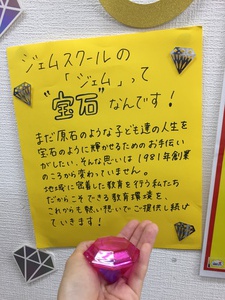 ジェムスクールの
「ジェム」って
"宝石"なんです！
まだ原石のような子ども達の人生を
宝石のように輝かせるためのお手伝い
がしたい、そんな思いは1981年創業
のころから変わっていません。
地域に密着した教育を行う私たち
だからこそできる教育環境を、
これからも熱い想いでご提供し続け
ていきます！